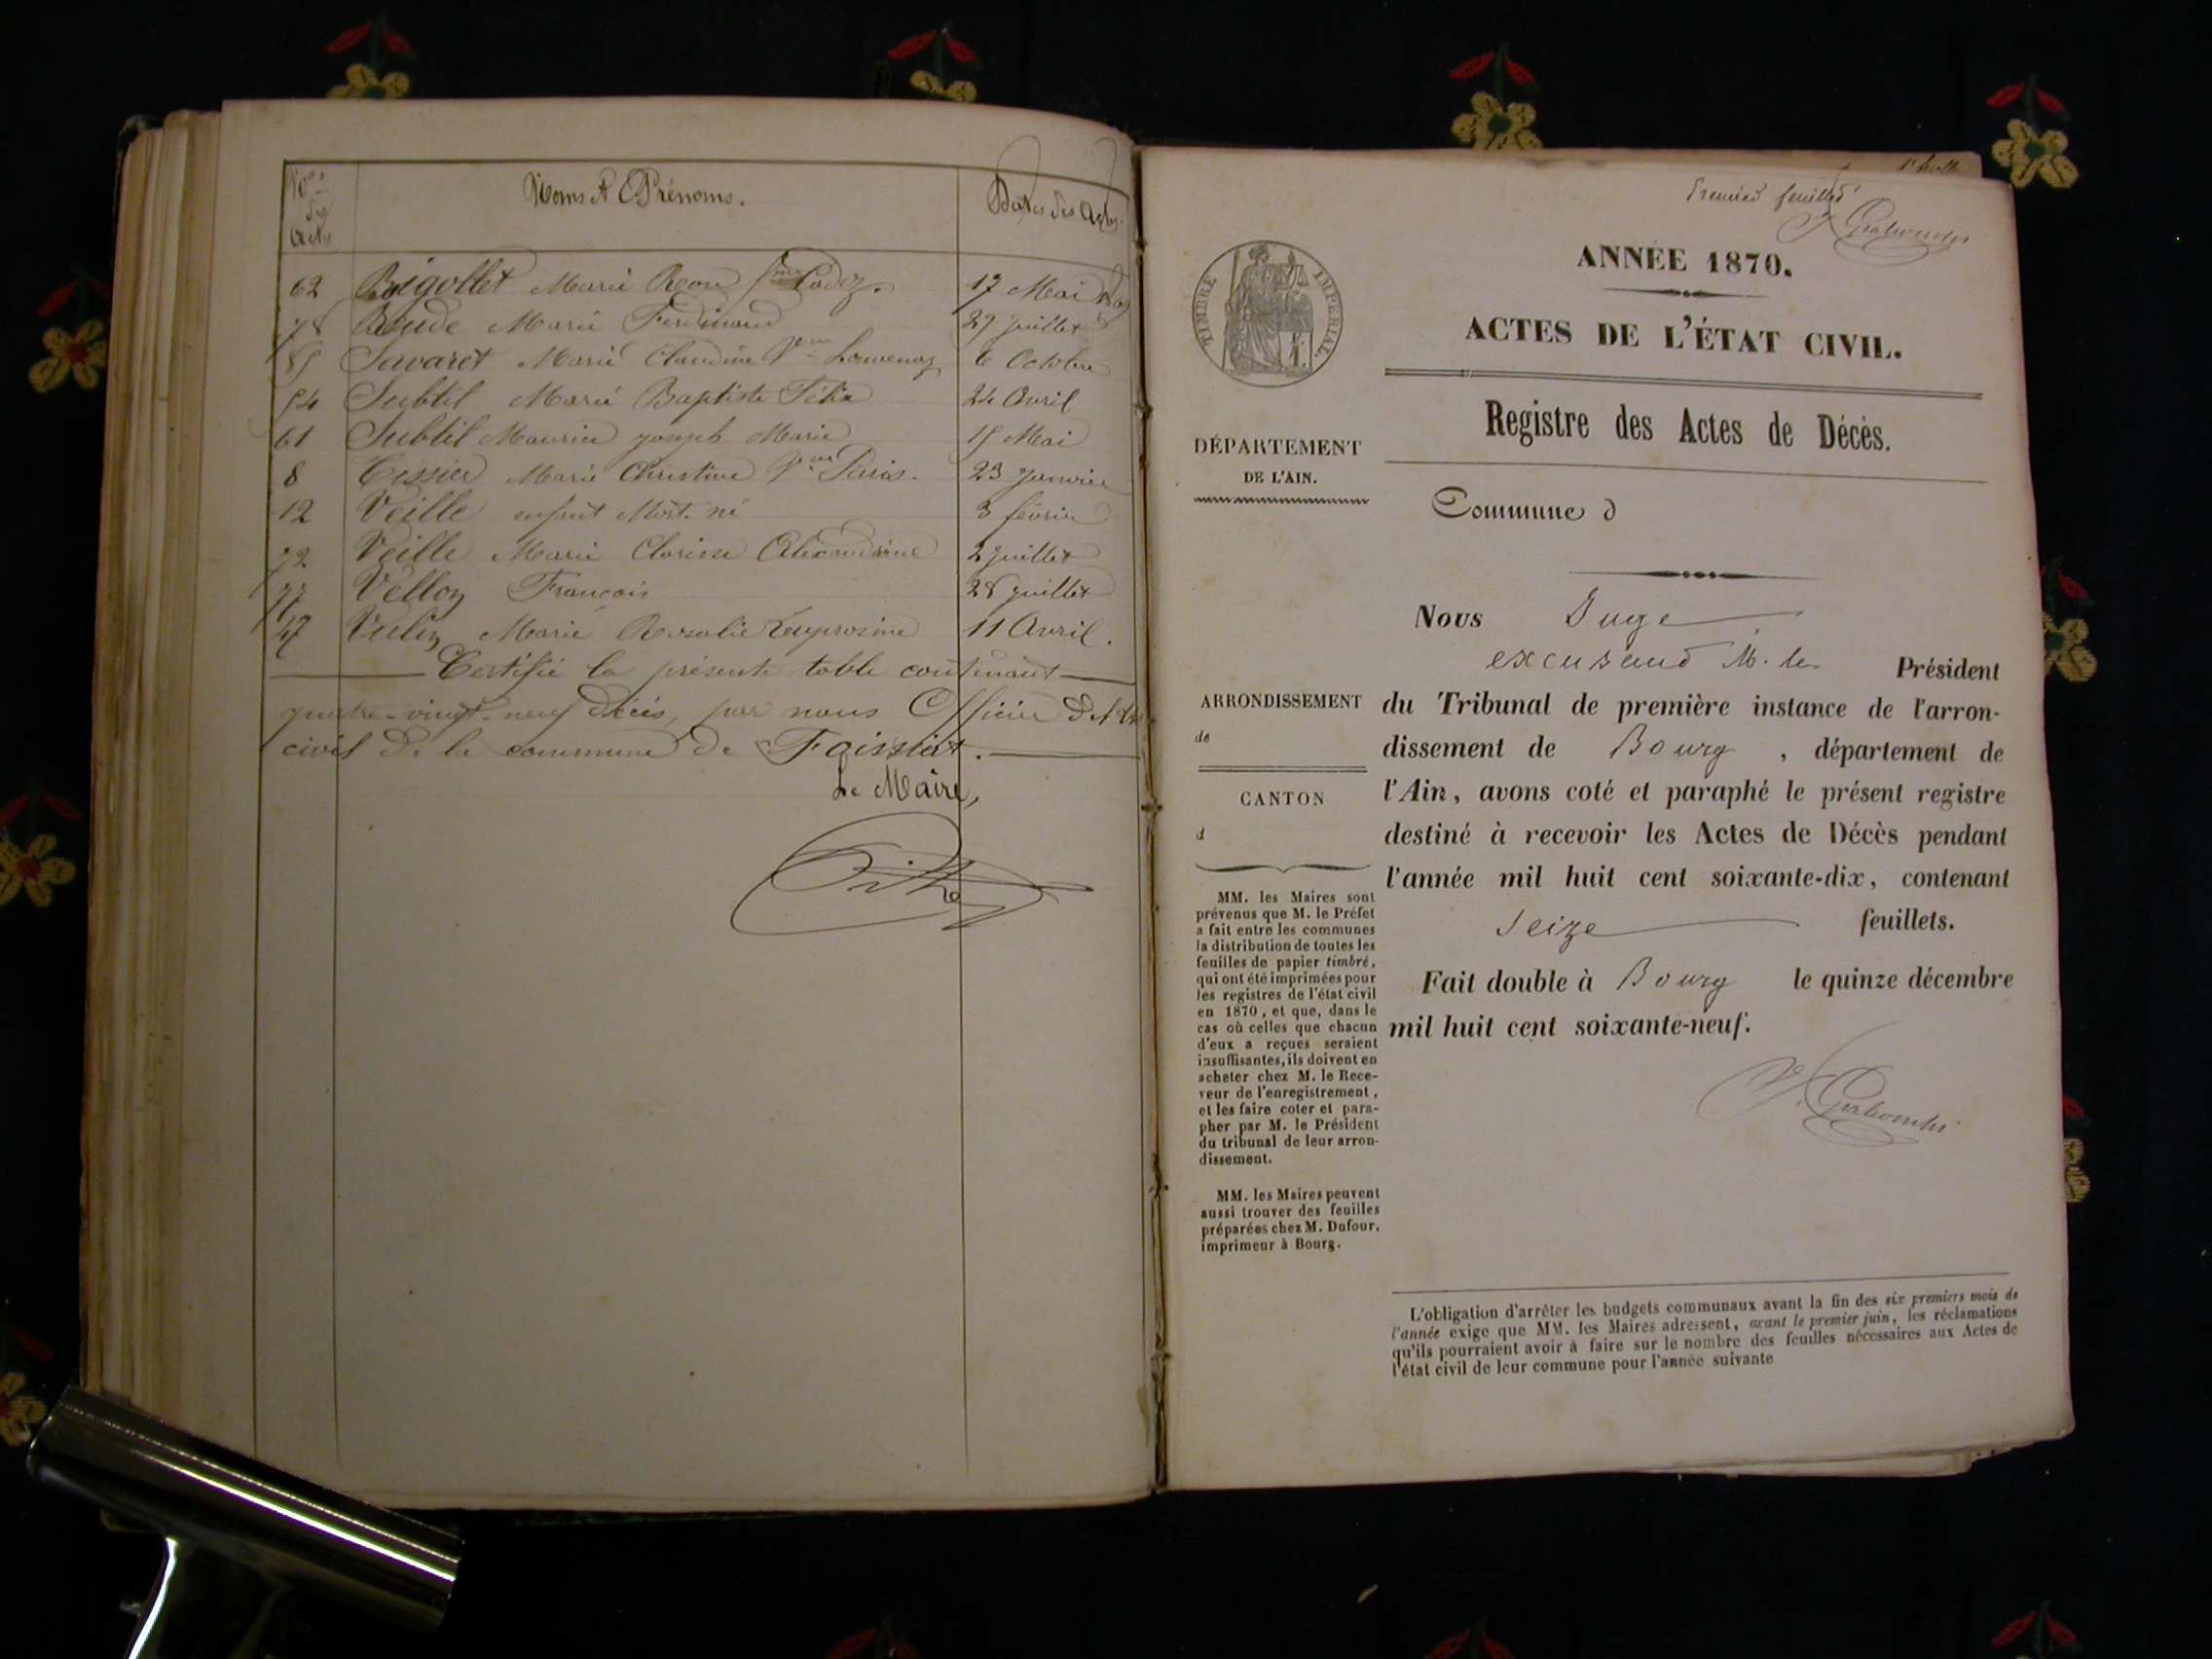 Nos des Actes
Noms et Prénoms.
Dates des Actes.
62 Rigollet Marie Rose fme 17 Mai
78 Rude Marie Ferdinand 29 juillet
85 Savaret Marie Claudine Vve 6 Octobre
54 Subtil Marie Baptiste Félix 24 Avril
61 Subtil Maurice joseph Marie 15 Mai
8 Tissier Marie Christine Paris. 23 janvier
12 Veille enfant Mort-né 3 février
72 Veille Marie Clarisse Alexandrine 2 juillet
77 Vellon François 28 juillet
47 Vulin Marie Rosalie 11 Avril.
Certifié la présente table contenant
quatre-vingt-neuf Décès, par nous Officier de l'état
civil de la commune de Foissiat.
Le Maire,
Premier feuillet
ANNÉE 1870.
TIMBRE IMPÉRIAL.
ACTES DE L'ÉTAT CIVIL.
Registre des Actes de Décès.
DÉPARTEMENT
DE L'AIN.
Commune d
Nous Juge
excusant M. le Président
ARRONDISSEMENT
de
du Tribunal de première instance de l'arron-
dissement de Bourg, département de
l'Ain, avons coté et paraphé le présent registre
destiné à recevoir les Actes de Décès pendant
l'année mil huit cent soixante-dix, contenant
seize feuillets.
Fait double à Bourg le quinze décembre
mil huit cent soixante-neuf.
CANTON
d
MM. les Maires sont
prévenus que M. le Préfet
a fait entre les communes
la distribution de toutes les
feuilles de papier timbré,
qui ont été imprimées pour
les registres de l'état civil
en 1870, et que, dans le
cas où celles que chacun
d'eux a reçues seraient
insuffisantes, ils doivent en
acheter chez M. le Rece-
veur de l'enregistrement,
et les faire coter et para-
pher par M. le Président
du tribunal de leur arron-
dissement.
MM. les Maires peuvent
aussi trouver des feuilles
préparées chez M. Dufour,
imprimeur à Bourg.
L'obligation d'arrêter les budgets communaux avant la fin des six premiers mois de
l'année exige que MM. les Maires adressent, avant le premier juin, les réclamations
qu'ils pourraient avoir à faire sur le nombre des feuilles nécessaires aux Actes de
l'état civil de leur commune pour l'année suivante